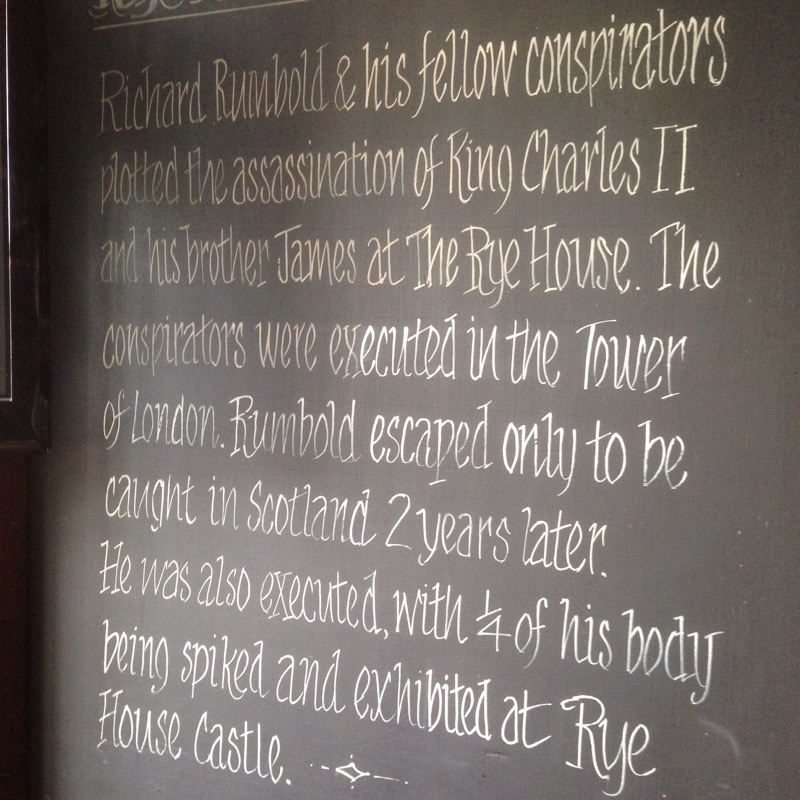 Richard Rumbold & his fellow conspirators
plotted the assassination of King Charles II
and his brother James at The Rye House. The
conspirators were executed in the Tower
of London. Rumbold escaped only to be
caught in Scotland 2 years later.
He was also executed, with ¼ of his body
being spiked and exhibited at Rye
House Castle.